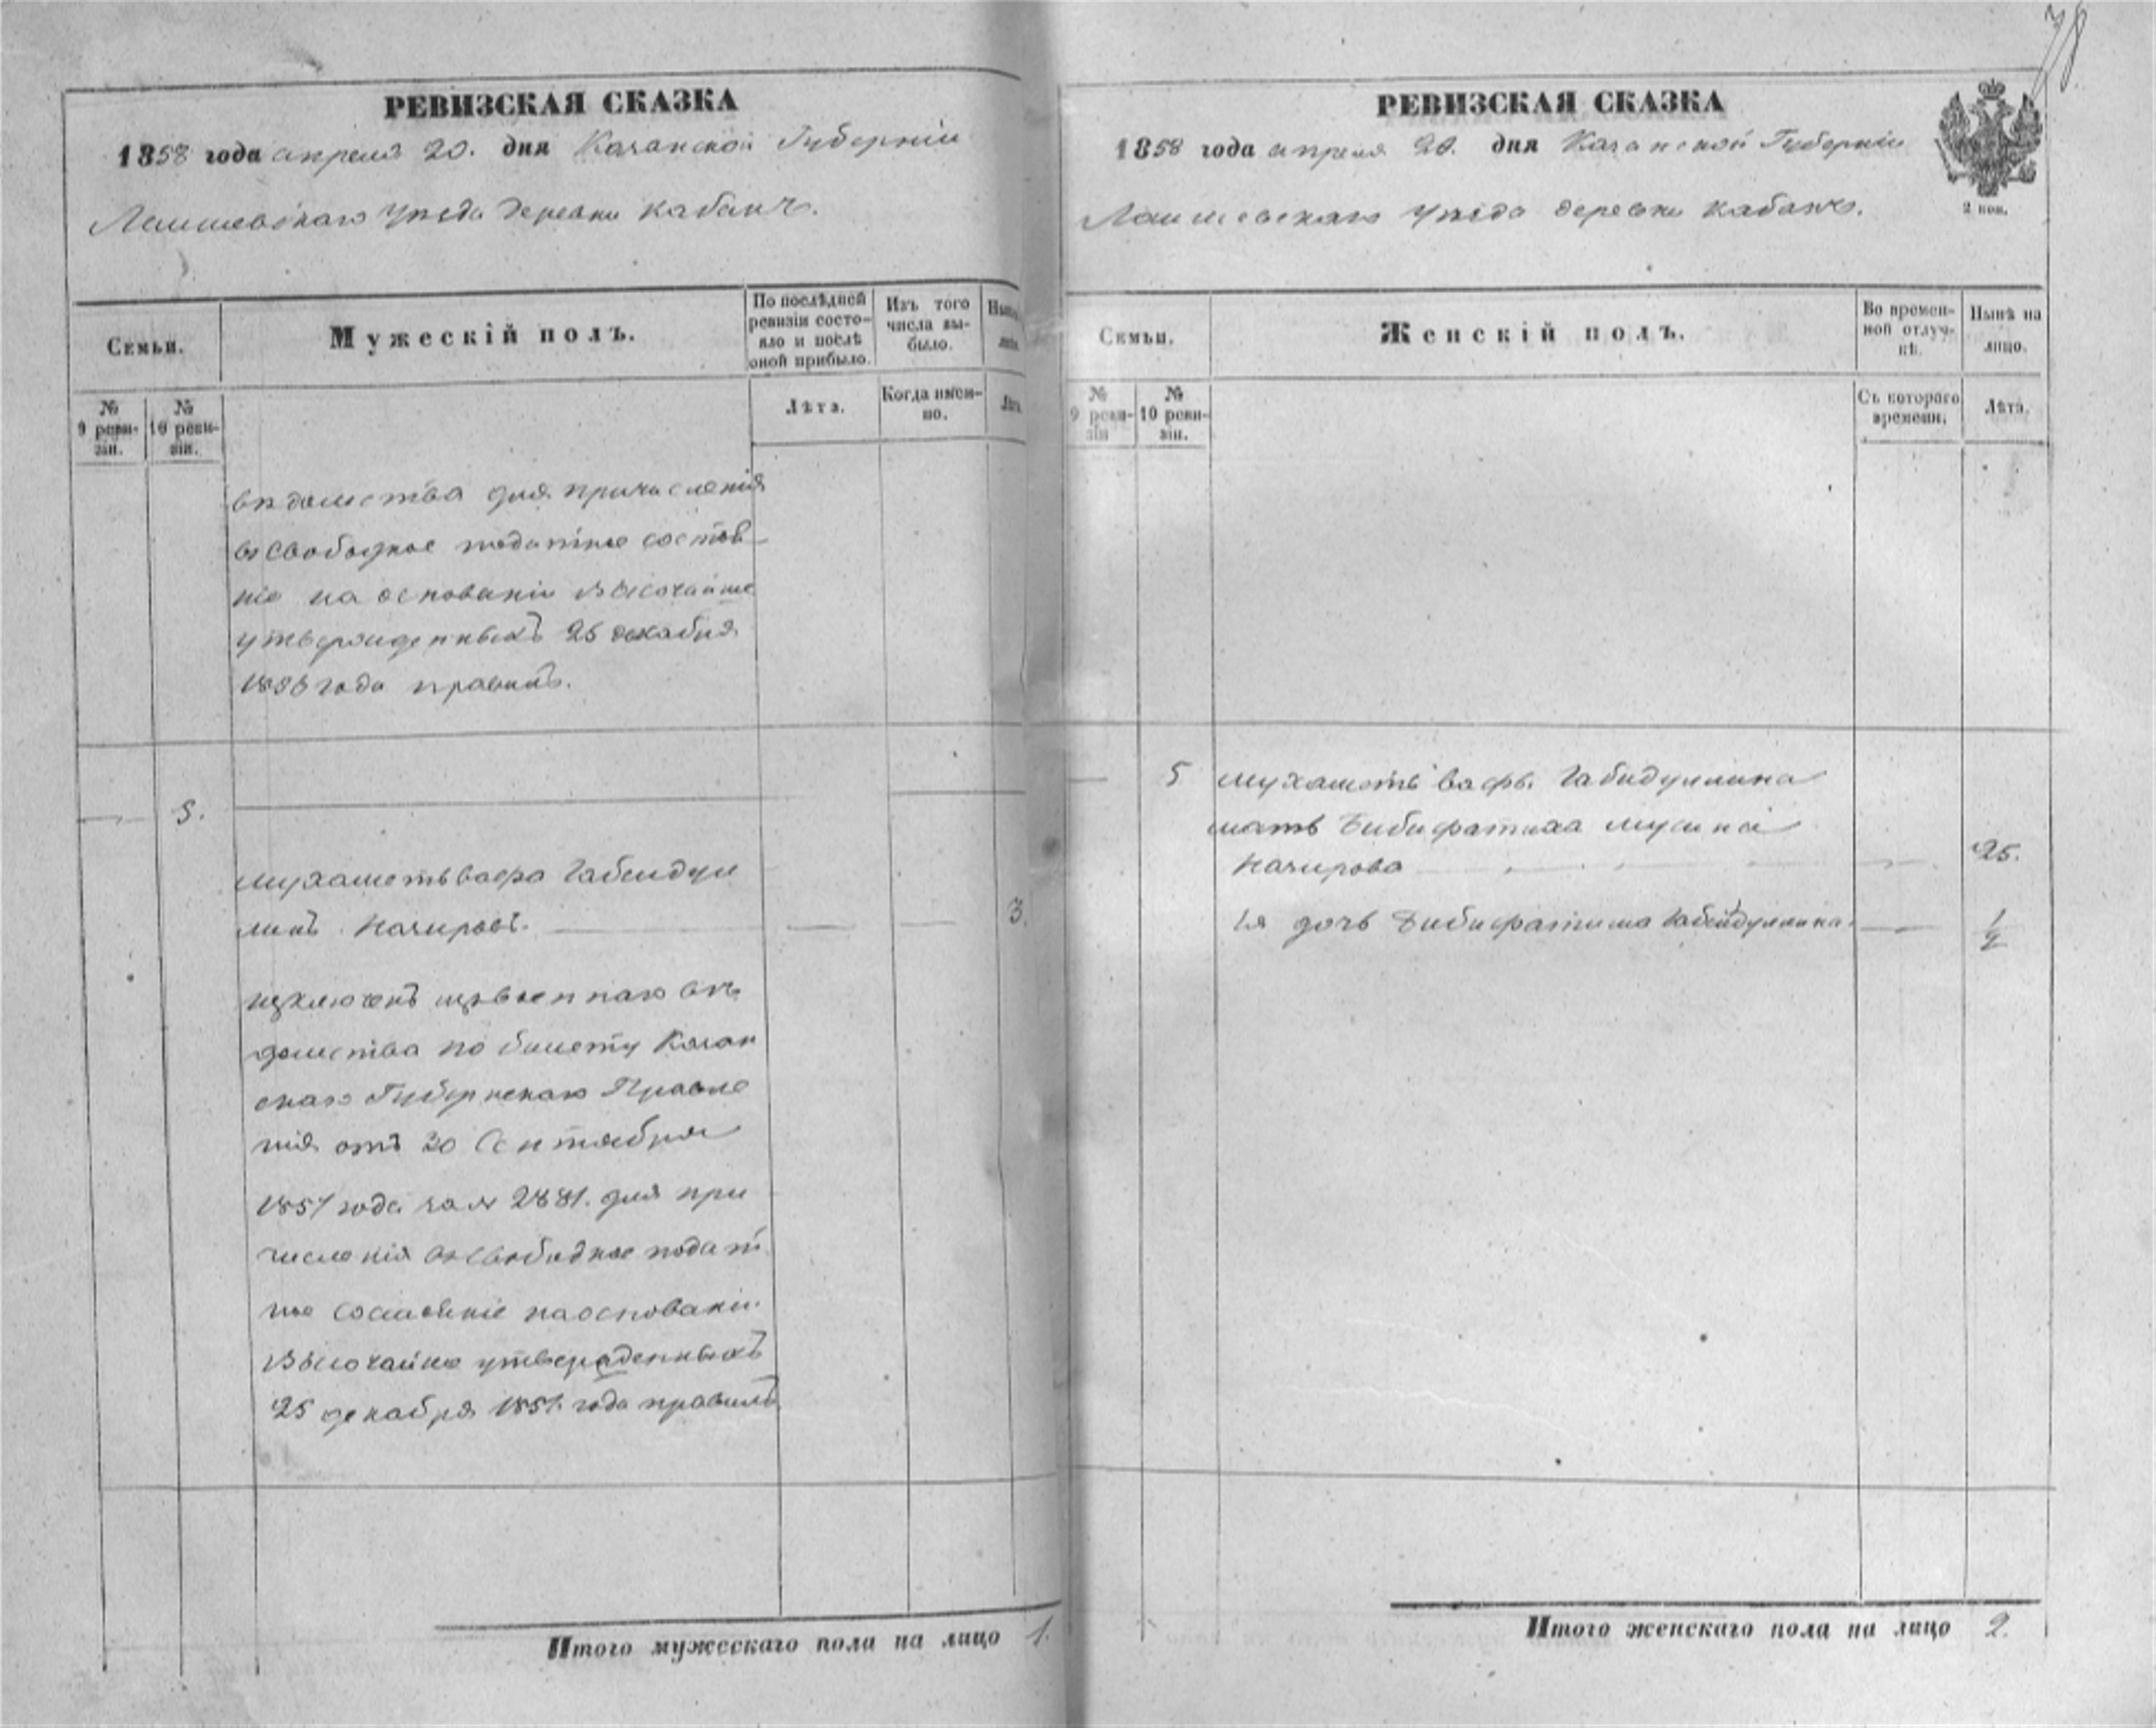 78
РЕВИЗСКАЯ СКАЗКА
1858 года апреля 20. дня Казанской Губерніи
Лаишевскаго уѣзда деревни Кабанъ.
Семьи.
Мужескій полъ.
По послѣдней ревизіи состояло и послѣ оной прибыло.
Изъ того числа выбыло.
№ 9 ревизіи.
№ 10 ревизіи.
Лѣта.
Когда именно.
Лѣта
вѣдомства для причисленія
въ свободное податное состоя
ніе на основаніи Высочайше
утвержденныхъ 25 декабря
года правилъ.
5.
Мухаметьвафа Габейдул
линъ Назировъ.
3.
изключенъ изъ военнаго вѣ
домства по билету Казан
скаго Губернскаго Правле
нія отъ 30 Сентября
1857 года за № 2881. для при
численія въ свободное подат
ное состояніе на основаніи
Высочайше утвержденныхъ
25 декабря года правилъ
Итого мужескаго пола на лицо 1.
РЕВИЗСКАЯ СКАЗКА
1858 года апреля 20. дня Казанской Губерніи
Лаишевскаго уѣзда деревни Кабанъ.
2 коп.
Семьи.
Женскій полъ.
Во временной отлучкѣ.
Нынѣ на лицо.
№ 9 ревизіи
№ 10 ревизіи.
Съ котораго времени.
Лѣта.
5 Мухаметь вафы Габидуллина
мать Бибифатиха Мусина
Назирова 25.
1я дочь Бибифатима Габейдуллина. 1/2
Итого женскаго пола на лицо 2.